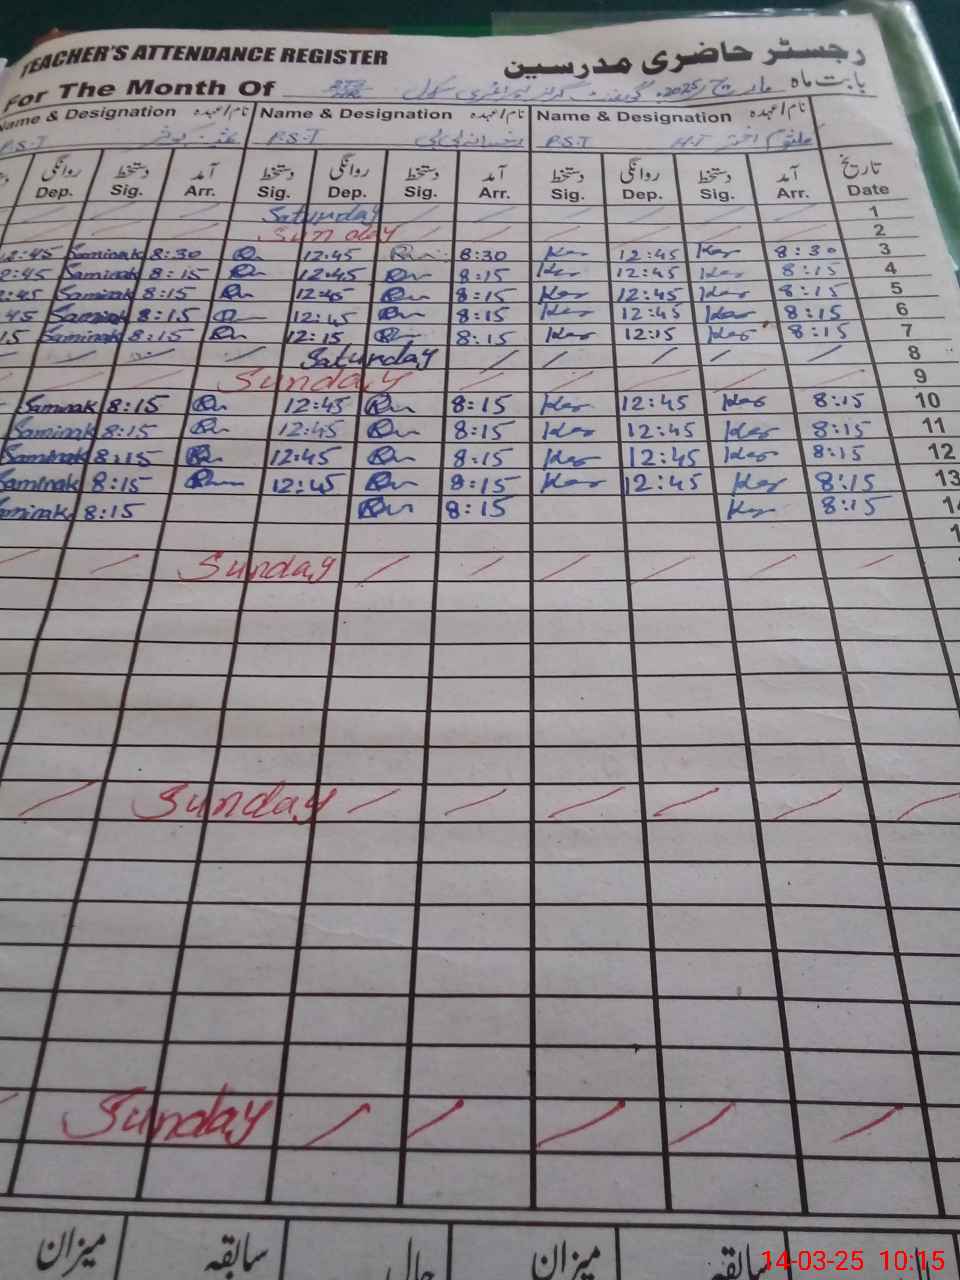 TEACHER'S ATTENDANCE REGISTER رجسٹر حاضری مدرسین
For The Month Of بابت ماہ مارچ 2025ء گورنمنٹ گرلز پرائمری سکول
Name & Designation نام/عہدہ Name & Designation نام/عہدہ Name & Designation نام/عہدہ
P.S.T P.S.T P.S.T H.T
روانگی دستخط آمد دستخط روانگی دستخط آمد دستخط روانگی دستخط آمد تاریخ
Dep. Sig. Arr. Sig. Dep. Sig. Arr. Sig. Dep. Sig. Arr. Date
Saturday 1
Sunday 2
12:45 Saminak 8:30 12:45 8:30 12:45 8:30 3
2:45 Saminak 8:15 12:45 8:15 12:45 8:15 4
:45 Saminak 8:15 12:45 8:15 12:45 8:15 5
45 Saminak 8:15 12:45 8:15 12:45 8:15 6
15 Saminak 8:15 12:15 8:15 12:15 8:15 7
Saturday 8
Sunday 9
Saminak 8:15 12:45 8:15 12:45 8:15 10
Saminak 8:15 12:45 8:15 12:45 8:15 11
Saminak 8:15 12:45 8:15 12:45 8:15 12
Saminak 8:15 12:45 8:15 12:45 8:15 13
Saminak 8:15 8:15 8:15 14
Sunday
Sunday
Sunday
میزان سابقہ حال میزان سابقہ حال
14-03-25 10:15